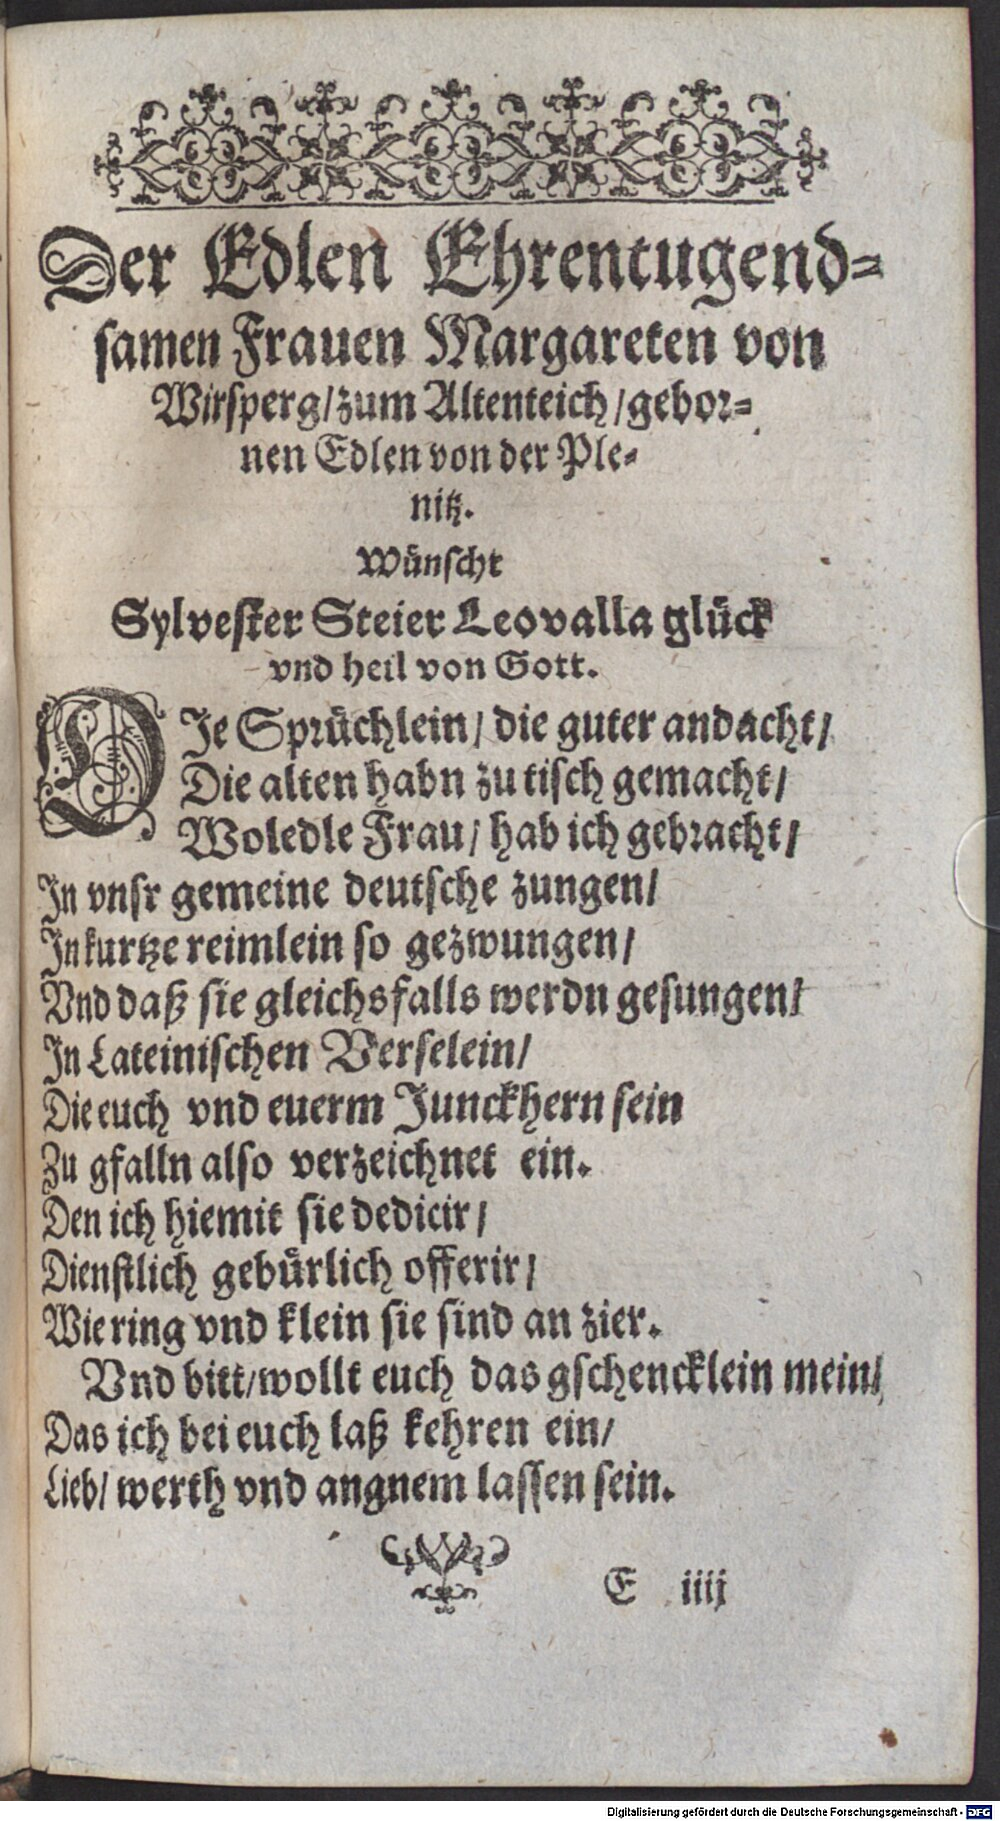 Der Edlen Ehrentugend-
samen Frauen Margareten von
Wirsperg/ zum Altenteich/ gebor-
nen Edlen von der Ple-
nitz.
Wünscht
Sylvester Steier Leovalla glück
vnd heil von Gott.
DIe Sprüchlein/ die guter andacht/
Die alten habn zu tisch gemacht/
Woledle Frau/ hab ich gebracht/
In vnsr gemeine deutsche zungen/
In kurtze reimlein so gezwungen/
Vnd daß sie gleichsfalls werdn gesungen/
In Lateinischen Verselein/
Die euch vnd euerm Junckhern sein
Zu gfalln also verzeichnet ein.
Den ich hiemit sie dedicir/
Dienstlich gebürlich offerir/
Wie ring vnd klein sie sind an zier.
Vnd bitt/ wollt euch das gschencklein mein/
Das ich bei euch laß kehren ein/
Lieb/ werth vnd angnem lassen sein.
E iiij
Digitalisierung gefördert durch die Deutsche Forschungsgemeinschaft - DFG